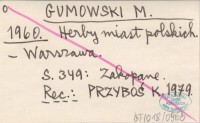 GUMOWSKI M.
1960. Herby miast polskich
– Warszawa.
S. 349: Zakopane.
Rec.: PRZYBOŚ K. 1979.